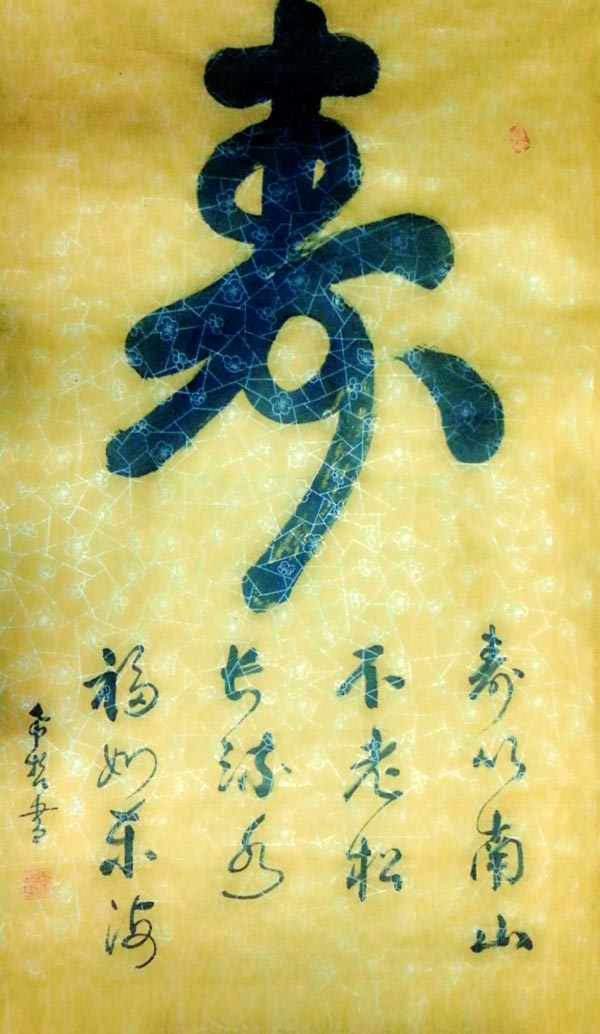 寿
寿比南山
不老松
长流水
福如东海